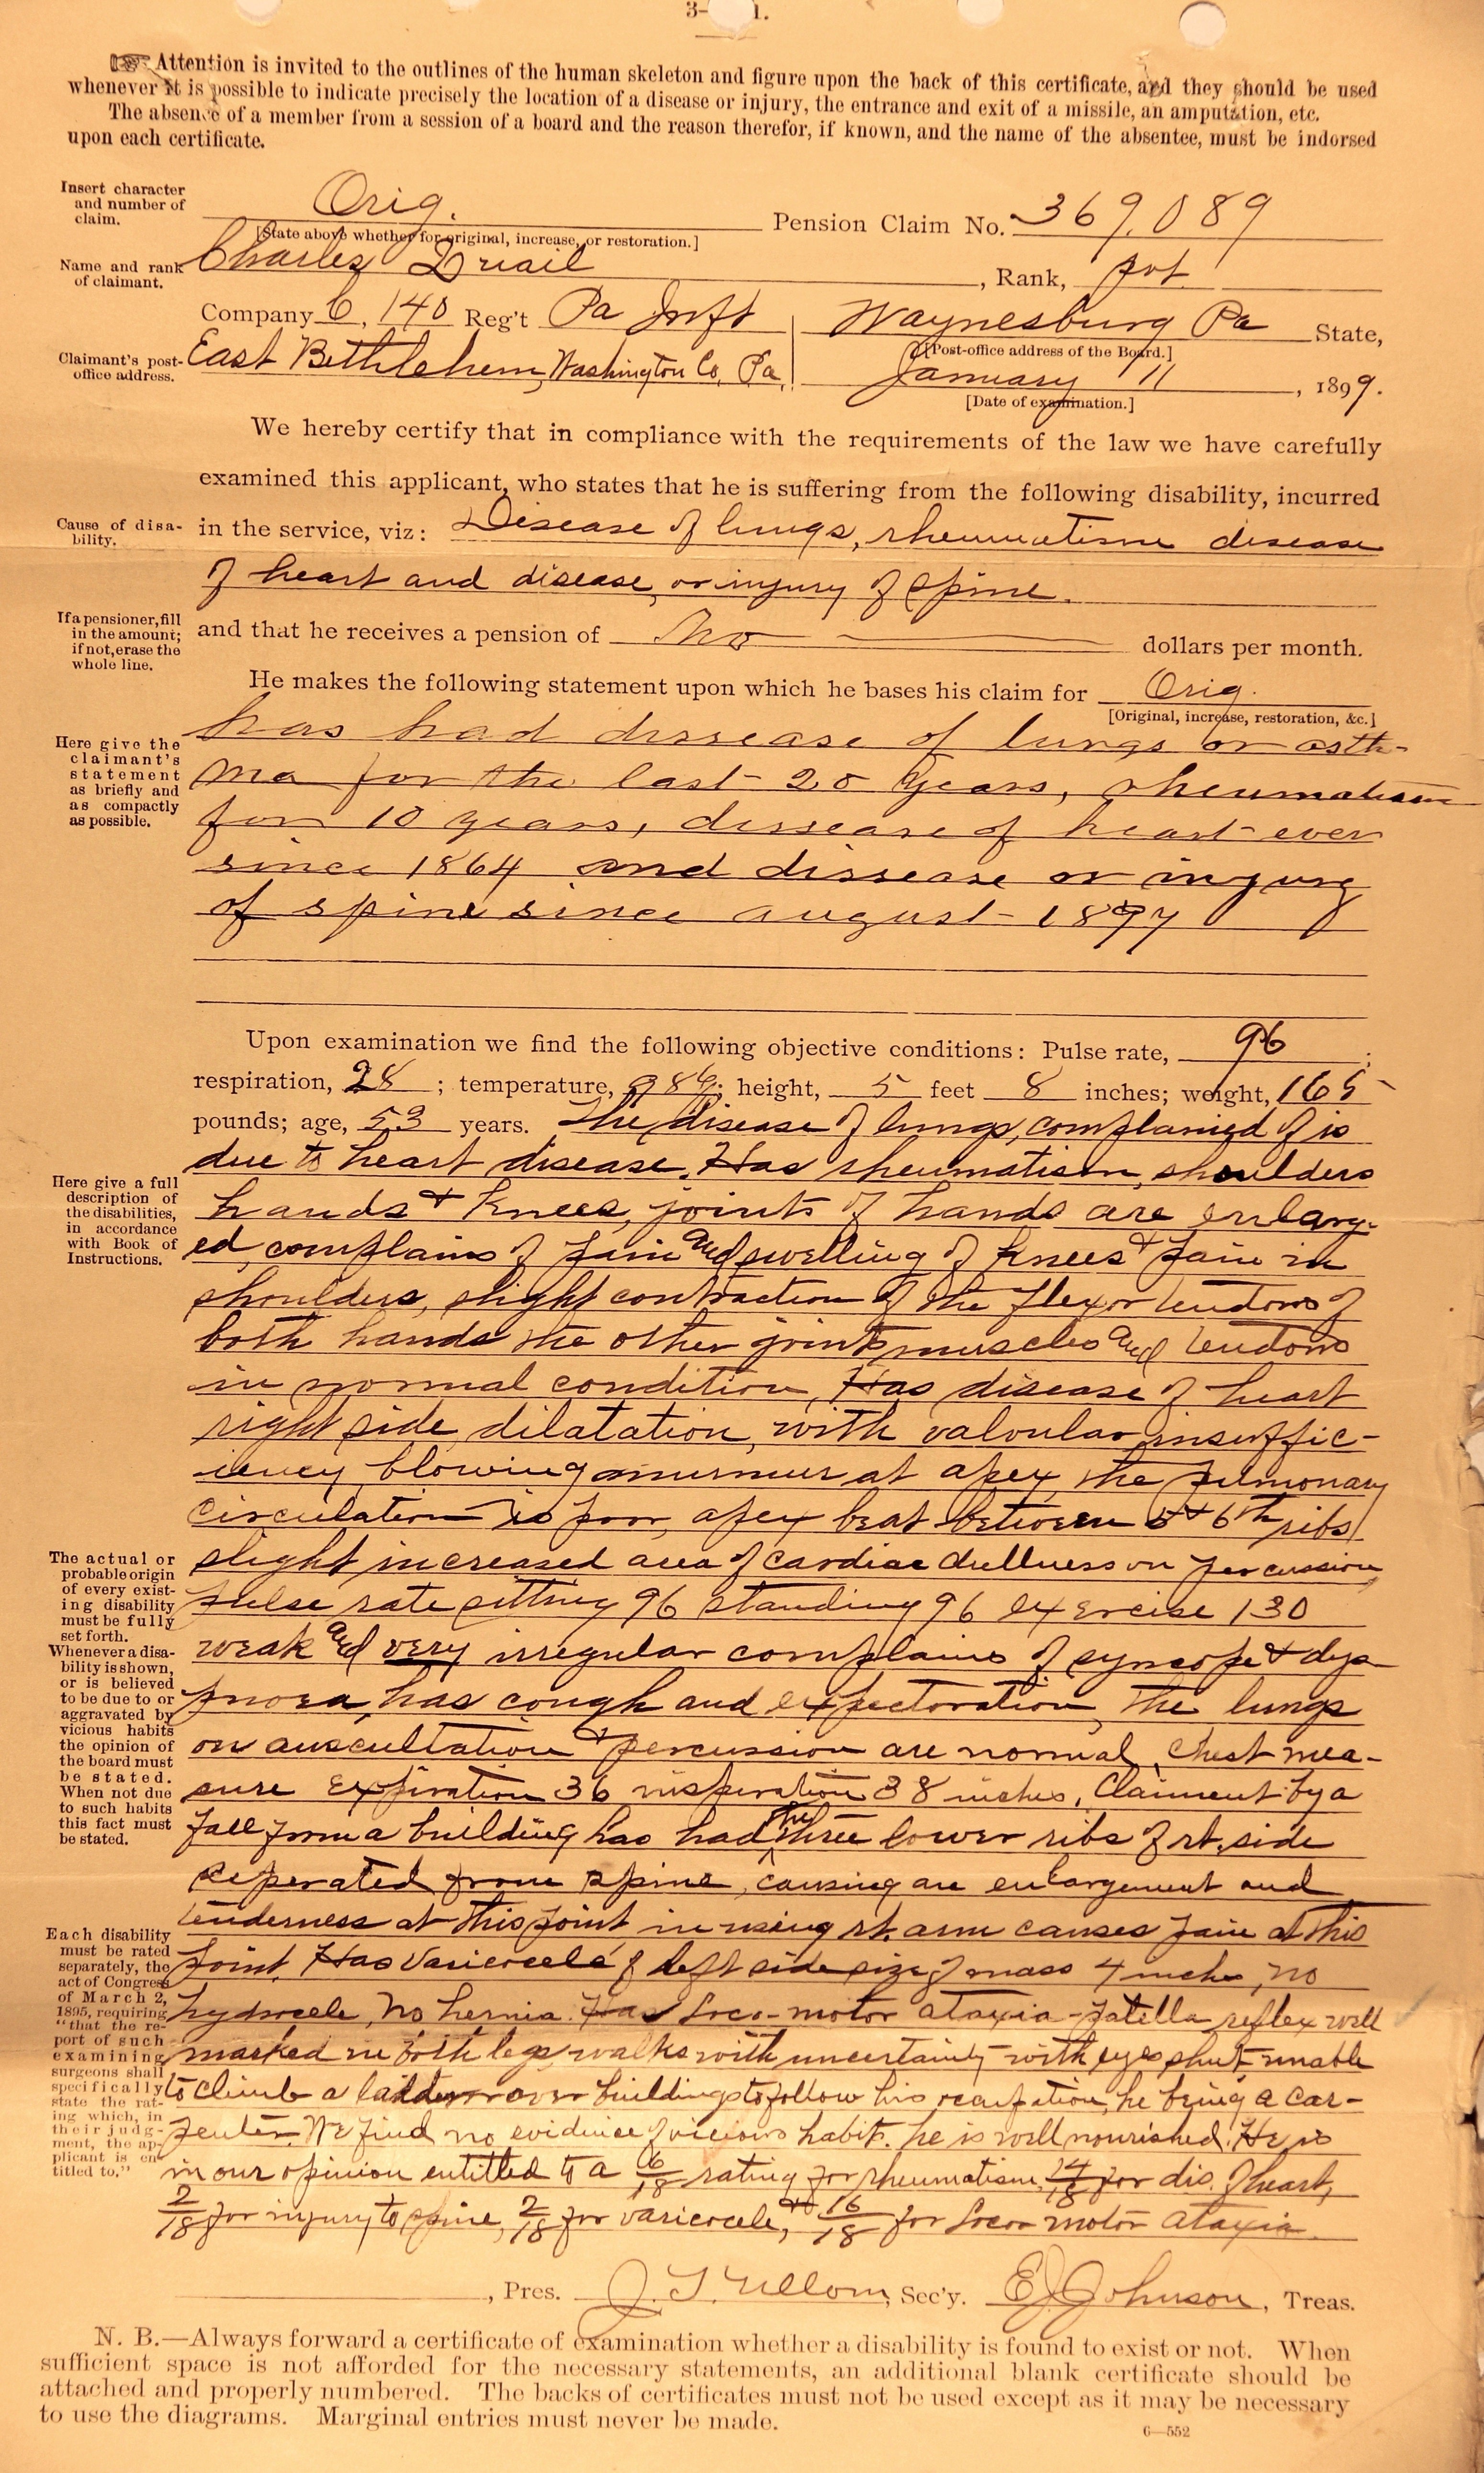 3- 1.
☞ Attention is invited to the outlines of the human skeleton and figure upon the back of this certificate, and they should be used
whenever it is possible to indicate precisely the location of a disease or injury, the entrance and exit of a missile, an amputation, etc.
The absence of a member from a session of a board and the reason therefor, if known, and the name of the absentee, must be indorsed
upon each certificate.
Insert character
and number of
claim.
Orig. Pension Claim No. 369,089
[State above whether for original, increase, or restoration.]
Name and rank
of claimant.
Charles Quail, Rank, pvt
Company C, 140 Reg't Pa Inft Waynesburg Pa State,
[Post-office address of the Board.]
Claimant's post-
office address.
East Bethlehem, Washington Co, Pa, January 11, 1899.
[Date of examination.]
We hereby certify that in compliance with the requirements of the law we have carefully
examined this applicant, who states that he is suffering from the following disability, incurred
Cause of disa-
bility.
in the service, viz: Disease of lungs, rheumatism disease
of heart and disease, or injury of spine.
If a pensioner, fill
in the amount;
if not, erase the
whole line.
and that he receives a pension of no dollars per month.
He makes the following statement upon which he bases his claim for Orig.
[Original, increase, restoration, &c.]
Here give the
claimant's
statement
as briefly and
as compactly
as possible.
has had dissease of lungs or asth-
ma for the last 20 years, rheumatism
for 10 years, dissease of heart ever
since 1864 and dissease or injury
of spine since august 1897
Upon examination we find the following objective conditions: Pulse rate, 96;
respiration, 28; temperature, 98½; height, 5 feet 8 inches; weight, 165
pounds; age, 53 years. The disease of lungs, complained of is
due to heart disease. Has rheumatism, shoulders
Here give a full
description of
the disabilities,
in accordance
with Book of
Instructions.
hands & knees, joints of hands are enlarg-
ed, complains of pain and swelling of knees & pain in
shoulders, slight contraction of the flexor tendons of
both hands the other joints muscles and tendons
in normal condition, Has disease of heart
right side, dilatation, with valvular, insuffic-
iency, blowing murmur at apex, the pulmonary
circulation is poor, apex beat between 5 & 6th ribs
slight increased area of cardiac dullness on percussion
pulse rate sitting 96 standing 96 exercise 130
weak and very irregular complains of syncope & dys-
pnoea, has cough and expectoration, the lungs
on auscultation & percussion are normal, chest mea-
sure expiration 36 inspiration 38 inches, Claiment by a
fall from a building has had the three lower ribs of rt. side
seperated from spine, causing are enlargement and
tenderness at this joint, in using rt. arm causes pain at this
joint. Has varicocele of left side size of mass 4 inches, no
hydrocele, no hernia. Has loco-motor ataxia - patella reflex well
marked in both legs, walks with uncertainty with eyes shut - unable
to climb a ladder or over buildings to follow his occupation, he being a car-
penter. We find no evidence of vicious habit. he is well nourished. He is
in our opinion entitled to a 6/18 rating for rheumatism, 14/18 for dis. of heart,
2/18 for injury to spine, 2/18 for varicocele, & 16/18 for loco motor ataxia.
The actual or
probable origin
of every exist-
ing disability
must be fully
set forth.
Whenever a disa-
bility is shown,
or is believed
to be due to or
aggravated by
vicious habits
the opinion of
the board must
be stated.
When not due
to such habits
this fact must
be stated.
Each disability
must be rated
separately, the
act of Congress
of March 2,
1895, requiring
"that the re-
port of such
examining
surgeons shall
specifically
state the rat-
ing which, in
their judg-
ment, the ap-
plicant is en-
titled to."
, Pres. J. T. Ullom, Sec'y. E J Johnson, Treas.
N. B.—Always forward a certificate of examination whether a disability is found to exist or not. When
sufficient space is not afforded for the necessary statements, an additional blank certificate should be
attached and properly numbered. The backs of certificates must not be used except as it may be necessary
to use the diagrams. Marginal entries must never be made.
6—552